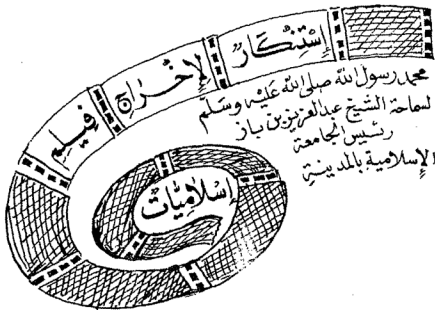 إسْتِنْكَارٌ
لِإخْرَاجِ
فِيلِمْ
محمد رسول الله صلى الله عليه وسلم
لسماحة الشيخ عبد العزيز بن باز
رئيس الجامعة
الإسلامية بالمدينة
إسْلَامِيَّاتْ